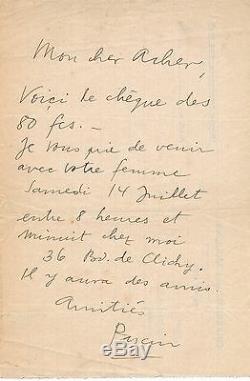 Mon cher Asher,
Voiçi le chèque des
80 fcs. —
Je vous prie de venir
avec votre femme
Samedi 14 Juillet
entre 8 heures et
minuit chez moi
36 Bvd. de Clichy.
Il y aura des amis.
Amitiés
Pascin
ebay